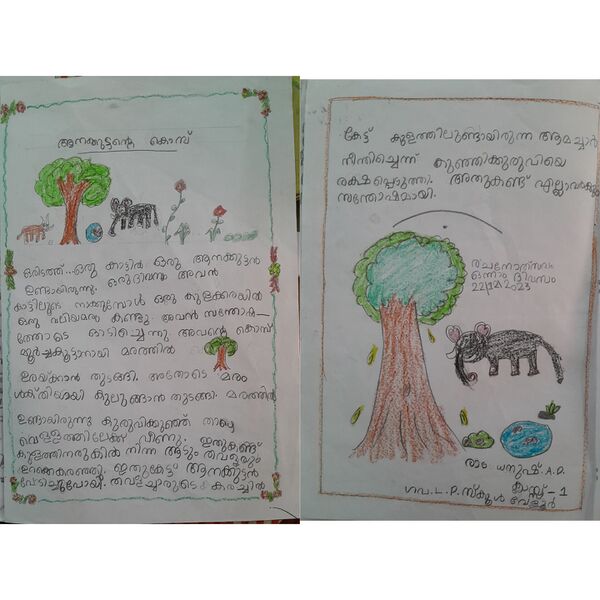 ആനക്കുട്ടന്റെ കൊമ്പ്
ഒരിടത്ത്...ഒരു കാട്ടിൽ ഒരു ആനക്കുട്ടൻ
ഉണ്ടായിരുന്നു. ഒരുദിവസം അവൻ
കാട്ടിലൂടെ നടക്കുമ്പോൾ ഒരു കുളക്കരയിൽ
ഒരു വലിയമരം കണ്ടു. അവൻ സന്തോഷ-
ത്തോടെ ഓടിച്ചെന്നു അവന്റെ കൊമ്പ്
മൂർച്ചകൂട്ടാനായി മരത്തിൽ
ഉരയ്ക്കാൻ തുടങ്ങി. അതോടെ മരം
ശക്തിയായി കുലുങ്ങാൻ തുടങ്ങി. മരത്തിൽ
ഉണ്ടായിരുന്നു കുരുവികുഞ്ഞ് താഴെ
വെള്ളത്തിലേക്ക് വീണു. ഇതുകണ്ട്
കുളത്തിനരുകിൽ നിന്ന ആടും തവളയും
ഉറക്കെകരഞ്ഞു. ഇതുകേട്ട് ആനക്കുട്ടൻ
പേടിച്ചുപോയി. തവളച്ചാരുടെ കരച്ചിൽ
കേട്ട് കുളത്തിലുണ്ടായിരുന്ന ആമച്ചാർ
നീന്തിച്ചെന്ന് കുഞ്ഞിക്കുരുവിയെ
രക്ഷപ്പെടുത്തി. അതുകണ്ട് എല്ലാവർക്കും
സന്തോഷമായി.
രചനോത്സവം
ഒന്നാം ദിവസം
ധനുഷ് A.D.
ക്ലാസ്സ് - 1
ഗവ. L.P. സ്കൂൾ വേളൂർ